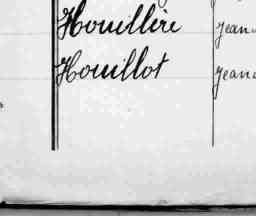 Houillère Jean
Houillot Jean